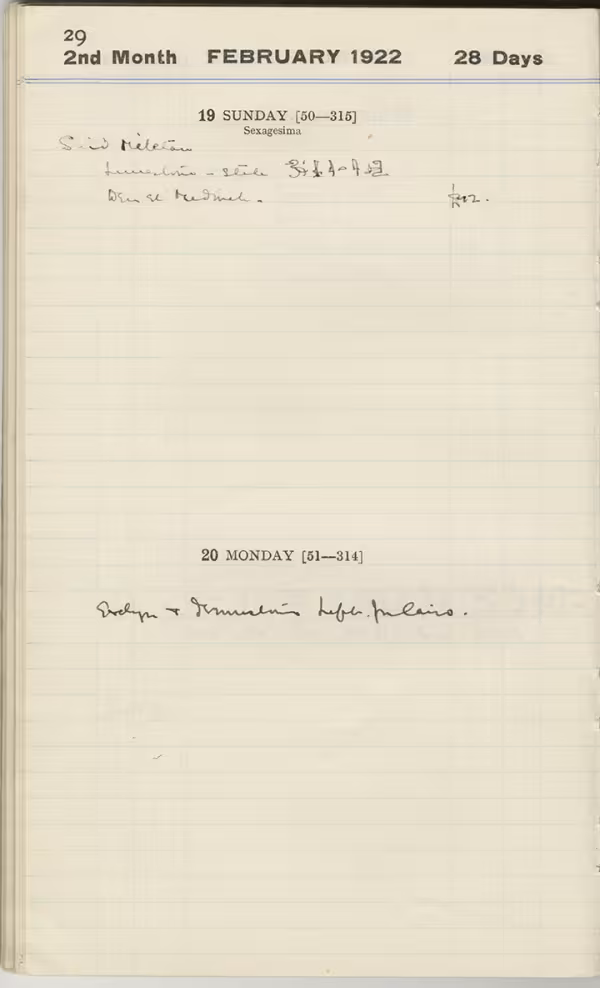 29
2nd Month FEBRUARY 1922 28 Days
19 SUNDAY [50—315]
Sexagesima
Limestone - Stele
Der el Medineh.
20 MONDAY [51—314]
Evelyn + left for Cairo.